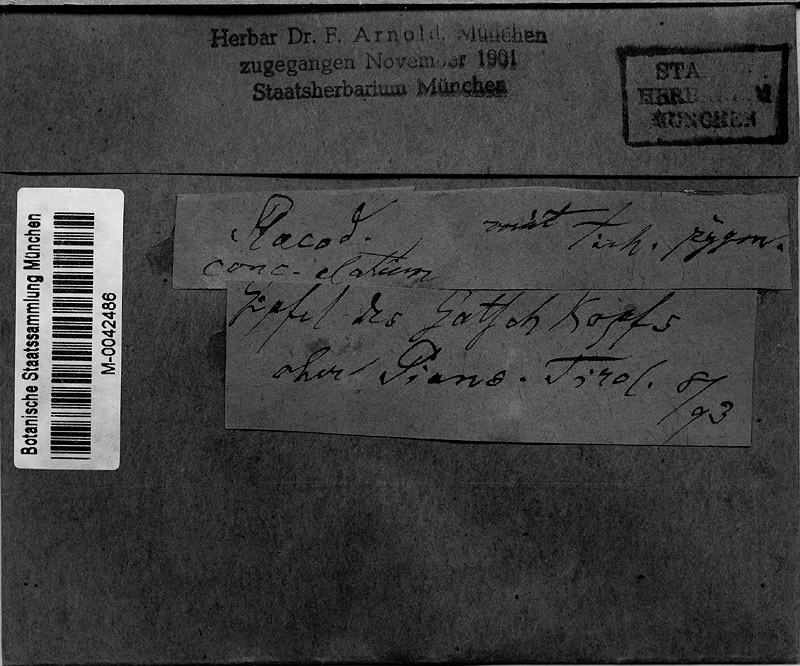 Herbar Dr. F. Arnold, München
zugegangen November 1901
Staatsherbarium München
STA
HERBARIUM
MÜNCHEN
Botanische Staatssammlung München
M-0042486
Placod. mit Tich. pygm.
conc. elatium
Gipfel des Gatsch Kopfs
ober Pians. Tirol. 8/93